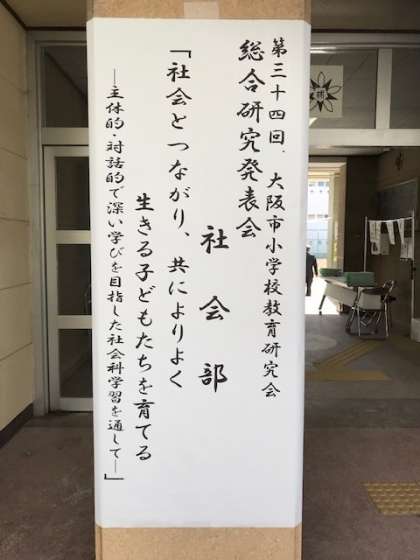 第三十四回、大阪市小学校教育研究会
総合研究発表会
社会部
「社会とつながり、共によりよく
生きる子どもたちを育てる
―主体的・対話的で深い学びを目指した社会科学習を通して―」